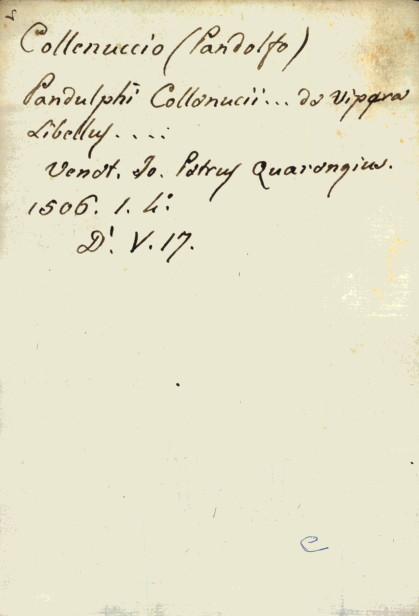 Collenuccio (Pandolfo)
Pandulphi Collenucii... de Vipera
Libellus....
Venet. Jo. Petrus Quarengius.
1506. 1. 4.º
D'. V. 17.
C